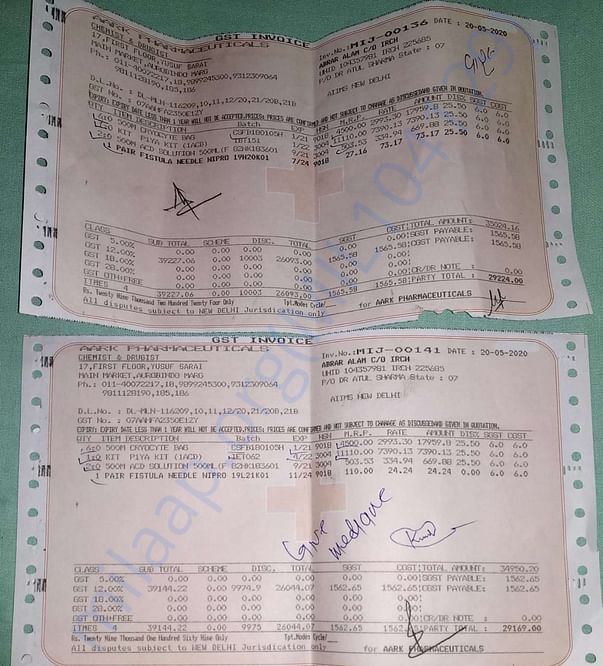 GST INVOICE
AARK PHARMACEUTICALS
CHEMIST & DRUGIST
17,FIRST FLOOR,YUSUF SARAI
MAIN MARKET,AUROBINDO MARG
Ph.: 011-40072217,18,9899245300,9312309064
9811128190,185,186
Inv.No.:MIJ-00136 DATE : 20-05-2020
ABRAR ALAM C/O IRCH
UHID 104357981 IRCH 225685
P/O DR ATUL SHARMA State : 07
AIIMS NEW DELHI
Give
D.L.No. : DL-MLN-116209,10,11,12/20,21/20B,21B
GST No. : 07AAHFA2350E1ZY
QTY ITEM DESCRIPTION Batch EXP HSN M.R.P. RATE AMOUNT DISC SGST CGST
6:0 500M CRYOCYTE BAG CSFB180105H 1/21 9018 4500.00 2993.30 17959.8 25.50 6.0 6.0
KIT P1YA KIT (1ACD) 11110.00 7390.13 7390.13 25.50 6.0 6.0
2:0 500M ACD SOLUTION 500ML(F 82HK183601 9/21 3004 503.53 334.94 669.88 25.50 6.0 6.0
1 PAIR FISTULA NEEDLE NIPRO 19H20K01 7/24 9018 73.17 73.17 25.50 6.0 6.0
CLASS SUB TOTAL SCHEME DISC. TOTAL SGST CGST TOTAL AMOUNT: 35024.16
GST 5.00% 0.00 0.00 0.00 0.00 0.00 0.00 SGST PAYABLE: 1565.58
GST 12.00% 39227.06 0.00 10003 26093.00 1565.58 1565.58 CGST PAYABLE: 1565.58
GST 18.00% 0.00 0.00 0.00 0.00 0.00 0.00
GST 28.00% 0.00 0.00 0.00 0.00 0.00 0.00
GST OTH+FREE 0.00 0.00 0.00 0.00 CR/DR NOTE : 0.00
ITMES 4 39227.06 0.00 10003 26093.00 1565.58 1565.58 PARTY TOTAL : 29224.00
Rs. Twenty Nine Thousand Two Hundred Twenty Four Only Tpt.Mode: Cycle/
All disputes subject to NEW DELHI Jurisdication only for AARK PHARMACEUTICALS
GST INVOICE
AARK PHARMACEUTICALS
CHEMIST & DRUGIST
17,FIRST FLOOR,YUSUF SARAI
MAIN MARKET,AUROBINDO MARG
Ph.: 011-40072217,18,9899245300,9312309064
9811128190,185,186
Inv.No.:MIJ-00141 DATE : 20-05-2020
ABRAR ALAM C/O IRCH
UHID 104357981 IRCH 225685
P/O DR ATUL SHARMA State : 07
AIIMS NEW DELHI
D.L.No. : DL-MLN-116209,10,11,12/20,21/20B,21B
GST No. : 07AAHFA2350E1ZY
QTY ITEM DESCRIPTION Batch EXP HSN M.R.P. RATE AMOUNT DISC SGST CGST
6:0 500M CRYOCYTE BAG CSFB180105H 1/21 9018 4500.00 2993.30 17959.8 25.50 6.0 6.0
1:0 KIT P1YA KIT (1ACD) 4/22 3004 11110.00 7390.13 7390.13 25.50 6.0 6.0
2:0 500M ACD SOLUTION 500ML(F 82HK183601 9/21 3004 503.53 334.94 669.88 25.50 6.0 6.0
1 PAIR FISTULA NEEDLE NIPRO 19L21K01 11/24 9018 110.00 24.24 24.24 0.00 6.0 6.0
Give medicine
CLASS SUB TOTAL SCHEME DISC. TOTAL SGST CGST TOTAL AMOUNT: 34950.20
GST 5.00% 0.00 0.00 0.00 0.00 0.00 0.00 SGST PAYABLE: 1562.65
GST 12.00% 39144.22 0.00 9974.9 26044.07 1562.65 1562.65 CGST PAYABLE: 1562.65
GST 18.00% 0.00 0.00 0.00 0.00 0.00 0.00
GST 28.00% 0.00 0.00 0.00 0.00 0.00 0.00
GST OTH+FREE 0.00 0.00 0.00 0.00 CR/DR NOTE : 0.00
ITMES 4 39144.22 0.00 9975 26044.07 1562.65 1562.65 PARTY TOTAL : 29169.00
Rs. Twenty Nine Thousand One Hundred Sixty Nine Only Tpt.Mode: Cycle/
All disputes subject to NEW DELHI Jurisdication only for AARK PHARMACEUTICALS